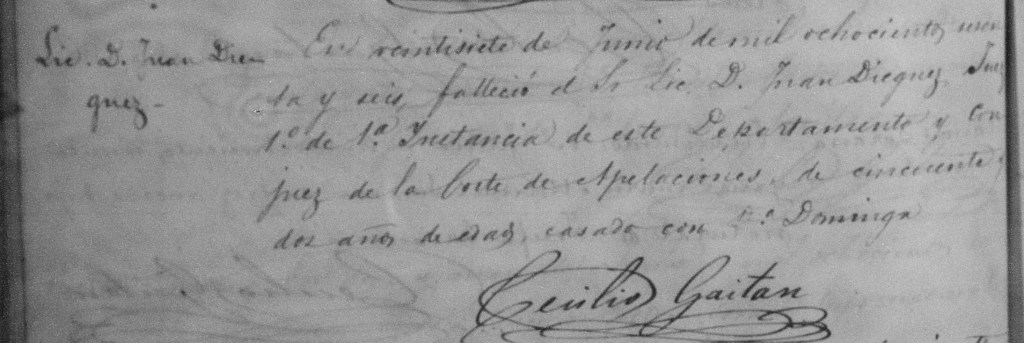 Lic. D. Juan Die
guez -
En veintisiete de Junio de mil ochocientos sesen
ta y seis, falleció el Sr Lic. D. Juan Dieguez Juez
1.º de 1.ª Instancia de este Departamento y con
juez de la Corte de Apelaciones, de cincuenta y
dos años de edad, casado con D.ª Dominga
Cecilio Gaitan